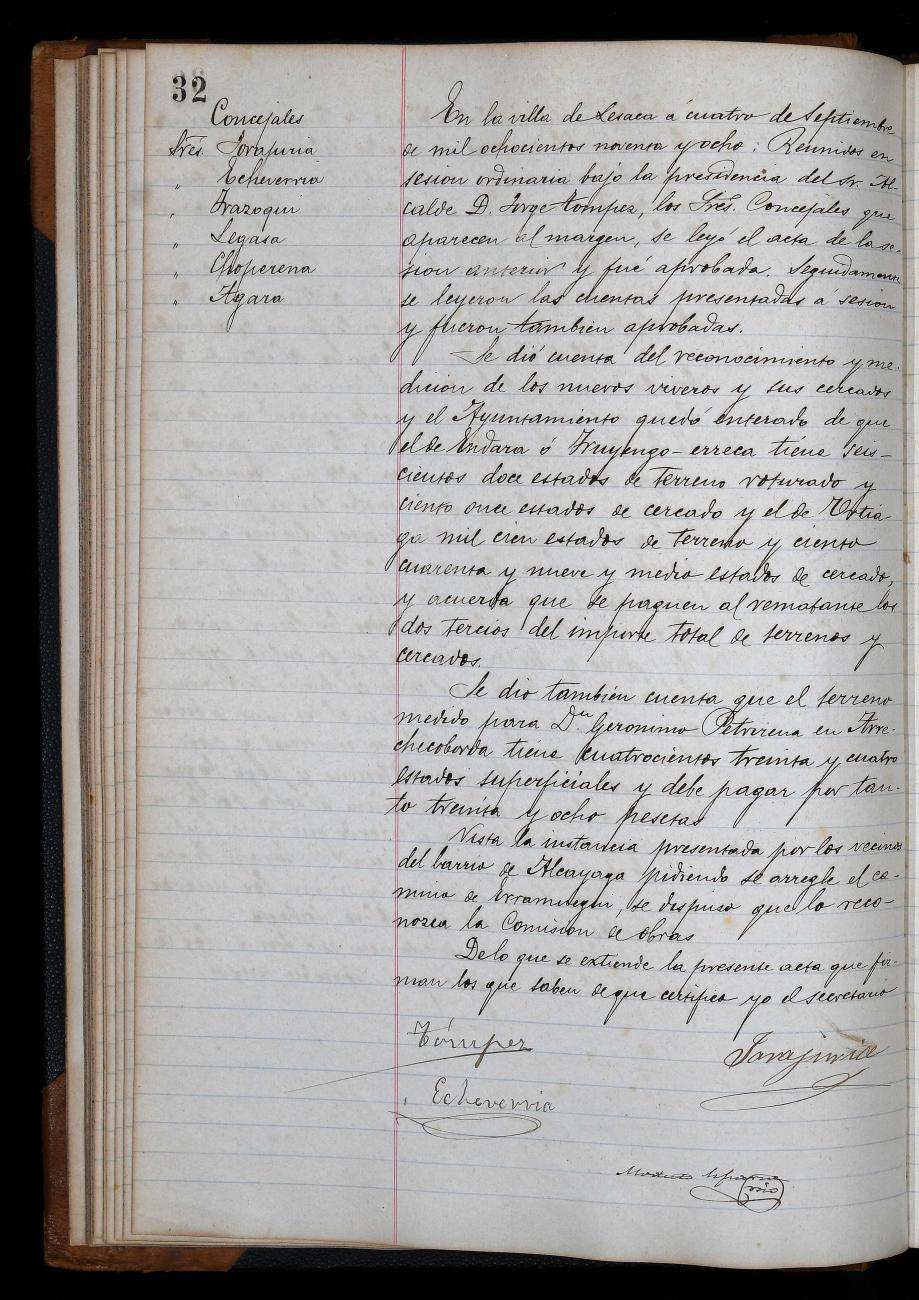 32
Concejales
Sres. Tovajuria
" Echeverria
" Irazoqui
" Legasa
" Choperena
" Agara
En la villa de Lesaca á cuatro de Septiembre
de mil ochocientos noventa y ocho; Reunidos en
sesion ordinaria bajo la presidencia del Sr. Al-
calde D. Jorge Tompez, los Sres. Concejales que
aparecen al margen, se leyó el acta de la se-
sion anterior y fué aprobada. Seguidamente
se leyeron las cuentas presentadas á sesion
y fueron tambien aprobadas.
Se dió cuenta del reconocimiento y me-
dicion de los nuevos viveros y sus cercados
y el Ayuntamiento quedó enterado de que
el de Endara ó Fruyengo-erreca tiene seis-
cientos doce estados de terreno roturado y
ciento once estados de cercado y el de
ga mil cien estados de terreno y ciento
cuarenta y nueve y medio estados de cercado,
y acuerda que se paguen al rematante los
dos tercios del importe total de terrenos y
cercados.
Se dio tambien cuenta que el terreno
medido para Dn. Geronimo Petrirena en Arre-
checoborda tiene cuatrocientos treinta y cuatro
estados superficiales y debe pagar por tan-
to treinta y ocho pesetas
Vista la instancia presentada por los vecinos
del barrio de Alcayaga pidiendo se arregle el ca-
mino de Erramuegui, se dispuso que lo reco-
nozca la Comision de obras
De lo que se extiende la presente acta que fir-
man los que saben de que certifico yo el secretario
Tómpez
Tovajuria
Echeverria
Modesto
srio